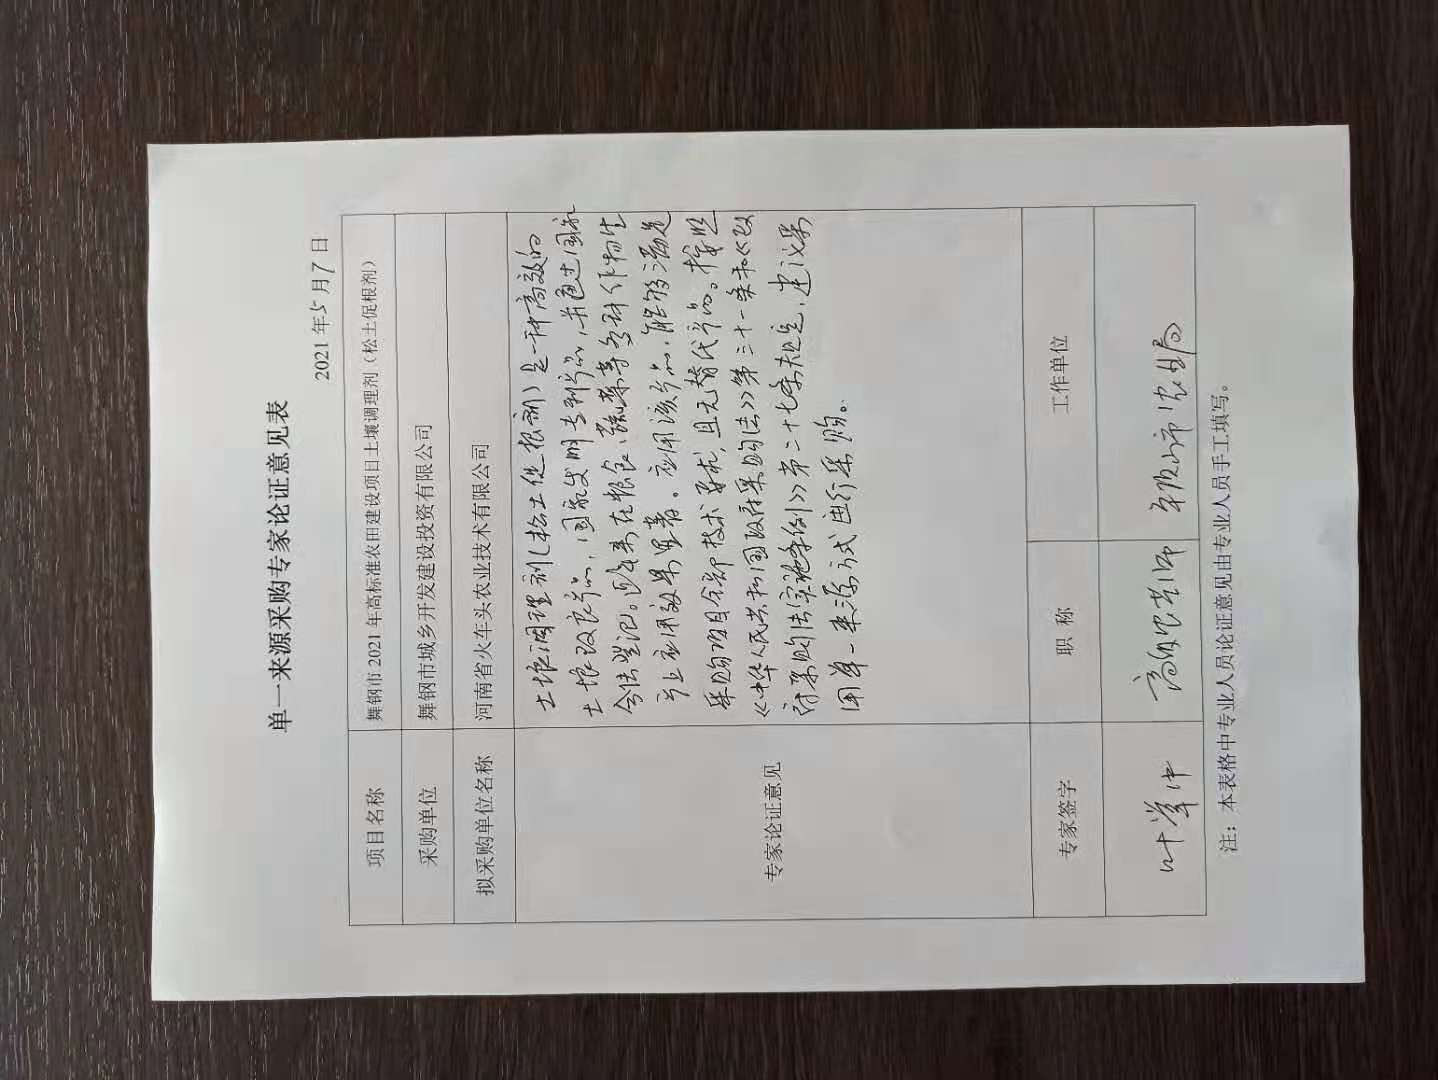 单一来源采购专家论证意见表
2021年5月7日
项目名称 舞钢市2021年高标准农田建设项目土壤调理剂（松土促根剂）
采购单位 舞钢市城乡开发建设投资有限公司
拟采购单位名称 河南省火车头农业技术有限公司
专家论证意见
土壤调理剂（松土促根剂）是一种高效的
土壤改良产品，国家发明专利产品，并通过国家
合法登记。近年来在粮食、蔬菜等多种作物生
产上应用效果显著。应用该产品，能够满足
采购项目全部技术要求，且无替代产品。按照
《中华人民共和国政府采购法》第三十一条和《政
府采购法实施条例》第二十七条规定，建议采
用单一来源方式进行采购。
专家签字 职 称 工作单位
叶 中 高级农艺师 平顶山市农业局
注：本表格中专业人员论证意见由专业人员手工填写。